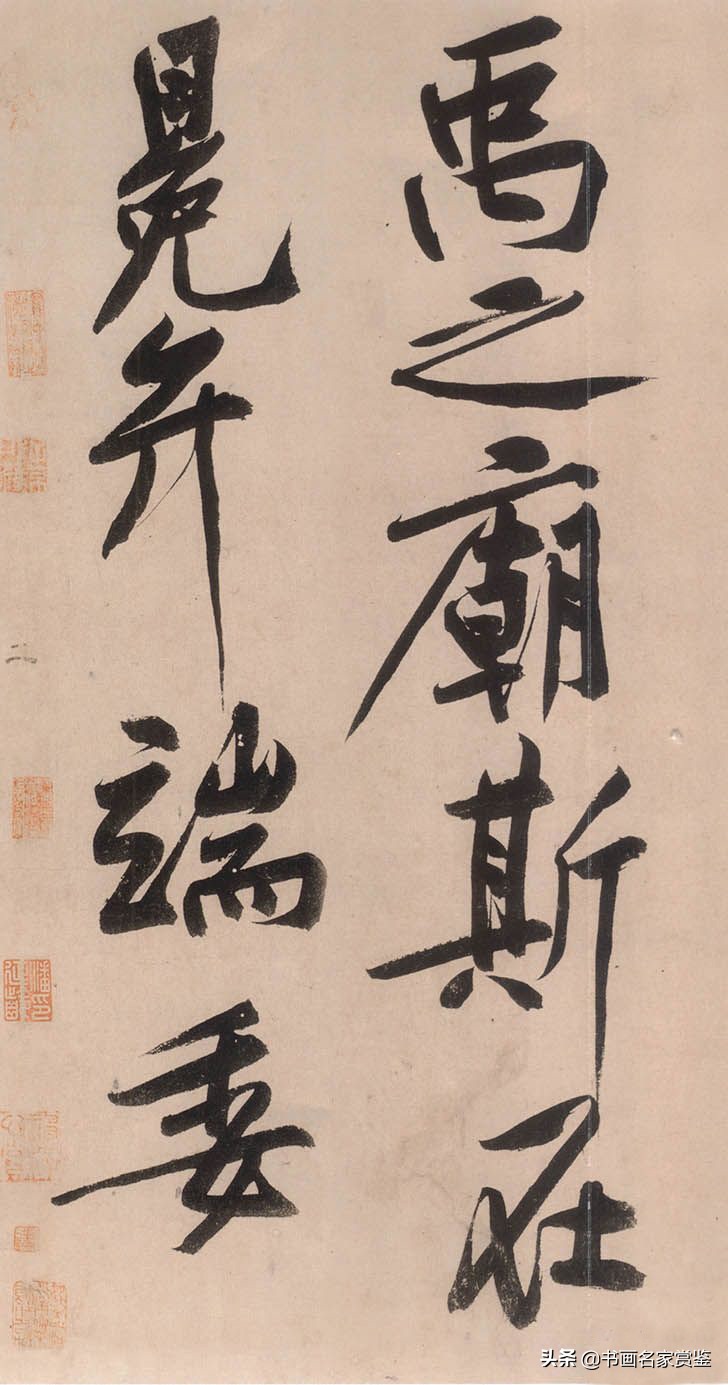 禹之廟斯在
冕弁端委
二
头条 @书画名家赏鉴